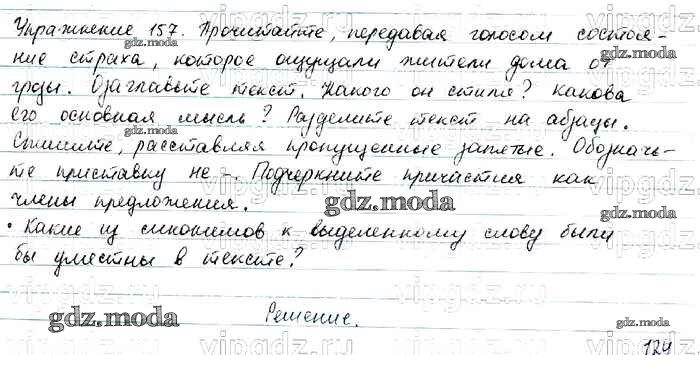 Упражнение 157. Прочитайте, передавая голосом состоя-
ние страха, которое ощущали жители дома от
грозы. Озаглавьте текст. Какого он стиля? Какова
его основная мысль? Разделите текст на абзацы.
Спишите, расставляя пропущенные запятые. Обозначь-
те приставку не-. Подчеркните причастия как
члены предложения.
• Какие из синонимов к выделенному слову были
бы уместны в тексте?
Решение.
124
gdz.moda
gdz.moda
gdz.moda
gdz.moda
gdz.moda
gdz.moda
gdz.moda
vipgdz.ru